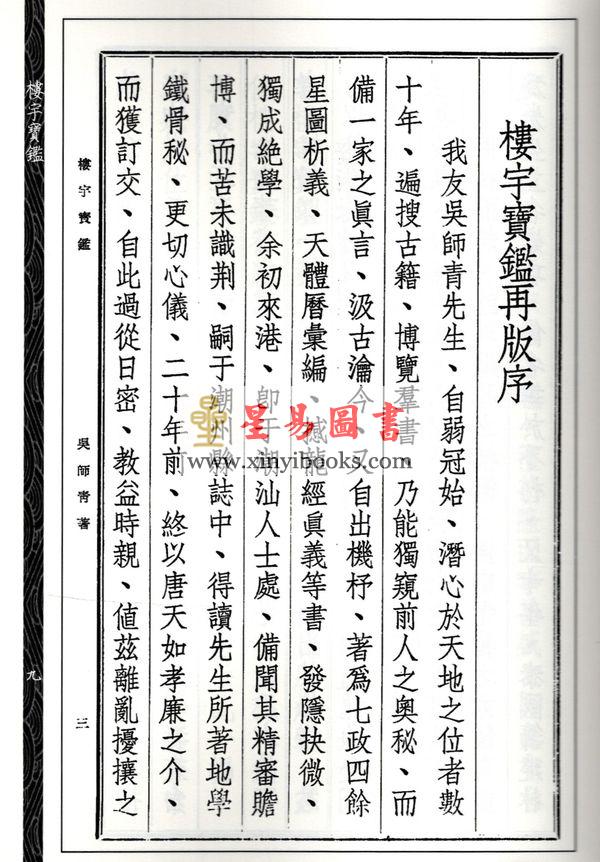 樓宇寶鑑再版序
我友吳師青先生、自弱冠始、潛心於天地之位者數
十年、遍搜古籍、博覽羣書、乃能獨窺前人之奧秘、而
備一家之眞言、汲古瀹今、又自出機杼、著爲七政四餘
星圖析義、天體曆彙編、撼龍經眞義等書、發隱抉微、
獨成絶學、余初來港、卽于潮汕人士處、備聞其精審贍
博、而苦未識荆、嗣于潮州縣誌中、得讀先生所著地學
鐵骨秘、更切心儀、二十年前、終以唐天如孝廉之介、
而獲訂交、自此過從日密、教益時親、値茲離亂擾攘之
樓宇寶鑑
吳師青著
三
樓宇寶鑑
九
星易圖書
www.xinyibooks.com